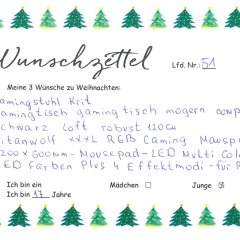 Wunschzettel
Lfd. Nr.: 51
Meine 3 Wünsche zu Weihnachten:
amingstuhl Krit
amingtisch gaming tisch mogern comp
chwarz Loft robust 120cm
itanwolf XXXL RGB Gaming Mausp
200 x 600mm-Mousepad-LED Multi Col
LED Farben Plus 4 Effektmodi-für
Ich bin ein Mädchen Junge
Ich bin 17 Jahre